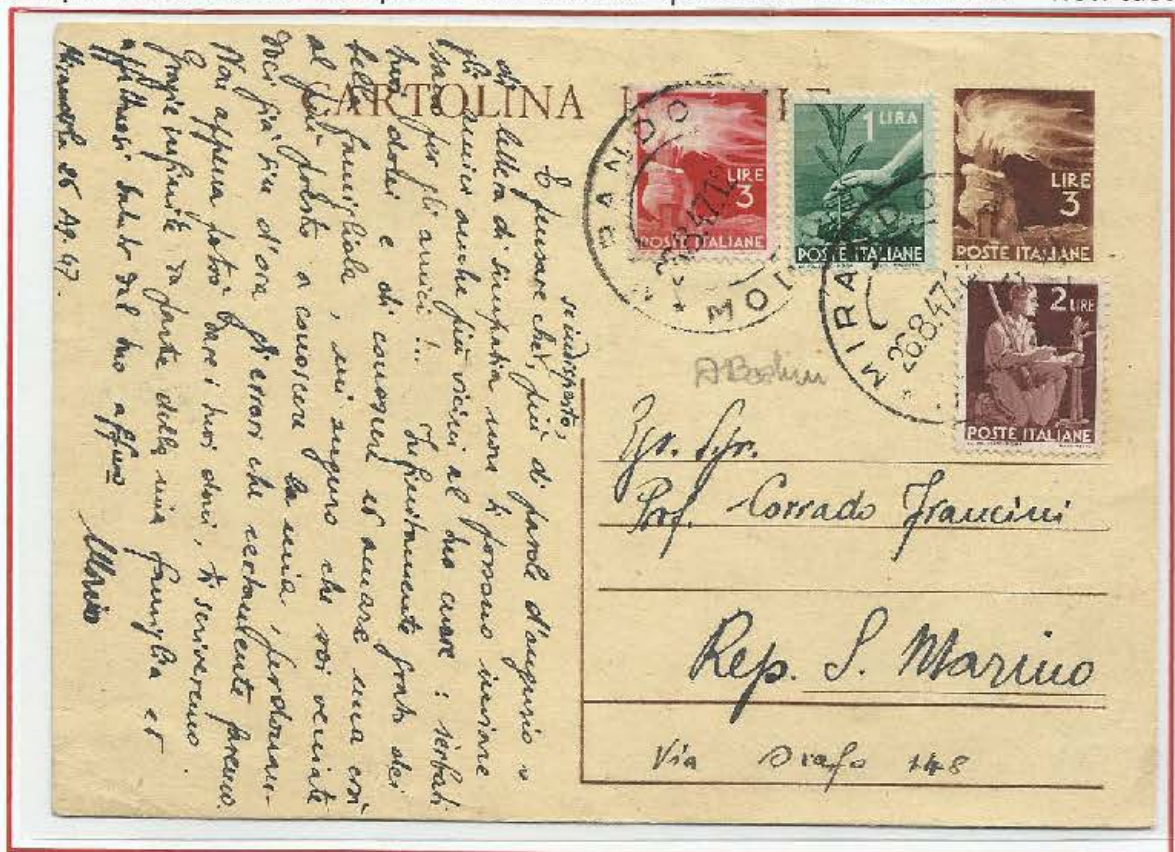 CARTOLINA
LIRE
3
POSTE ITALIANE
1 LIRA
POSTE ITALIANE
LIRE
3
POSTE ITALIANE
2 LIRE
POSTE ITALIANE
26.8.47
MIRANDO
26.8.47
Prof. Corrado Francini
Rep. S. Marino
Via 148
E pensare che, più di parole d'augurio o
di lettera di simpatia non ti possono inviare
gli amici anche più vicini al tuo cuore :
per gli amici !... Infinitamente grato dei
tuoi doni e di conoscere ed amare una così
bella famigliola , mi auguro che voi veniate
al più presto a conoscere la mia ,
doci già fin d'ora gli errori che certamente faremo.
Non appena potrò dare i tuoi doni , ti scriveremo
Grazie infinite da parte della mia famiglia ed
affettuosi saluti dal tuo aff.mo
Mirandola 26 Ag. 47.